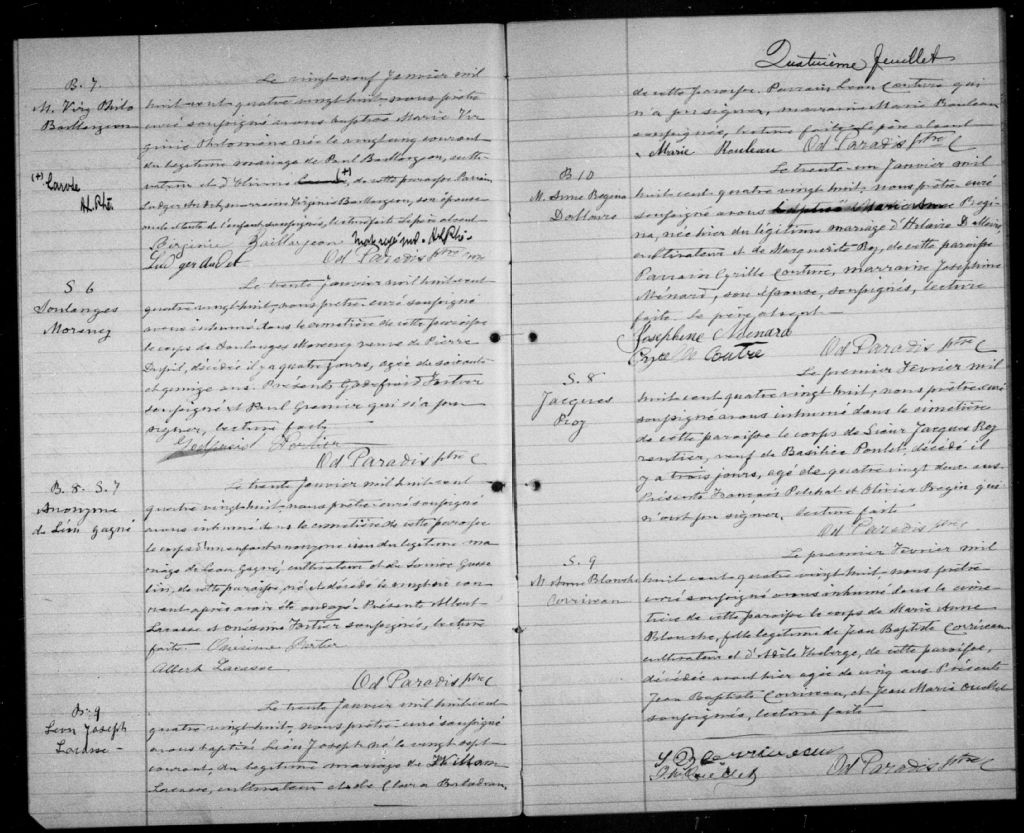 B. 7.
M. Virg Philo
Baillargeon
Le vingt neuf Janvier mil
huit cent quatre vingt huit, nous prêtre
curé soussigné avons baptisé Marie Vir
ginie Philomène née le vingt cinq courant
du légitime mariage de Paul Baillargeon, culti
vateur et d'Elmire (+), de cette paroisse. Parrain
Ludger Audet, marraine Virginie Baillargeon, son épouse
oncle et tante de l'enfant, soussignés, lecture faite. Le père absent
(+) Larose
Virginie Baillargeon
Ludger Audet Od Paradis ptre curé
S. 6
Soulanges
Morency
Le trente Janvier mil huit cent
quatre vingt huit, nous prêtre curé soussigné
avons inhumé dans le cimetière de cette paroisse
le corps de Soulanges Morency veuve de Pierre
décédée il y a quatre jours, agée de soixante
et quinze ans. Présents Godefroid Fortier
soussigné et Paul Grenier qui n'a pu
signer, lecture faite
Godfroid Fortier
Od Paradis ptre C
B. 8. S. 7
Anonyme
de Léon Gagné
Le trente Janvier mil huit cent
quatre vingt huit, nous prêtre curé soussigné
avons inhumé dans le cimetière de cette paroisse
le corps d'un enfant anonyme issu du légitime ma
riage de Léon Gagné, cultivateur et de Gosse
lin, de cette paroisse, né et décédé le vingt six cou
rant après avoir été ondoyé. Présents Albert
Lacasse et Onésime Fortier soussignés, lecture
faite. Onésime Fortier
Albert Lacasse
Od Paradis ptre C
B. 9
Léon Joseph
Lacasse
Le trente Janvier mil huit cent
quatre vingt huit, nous prêtre curé soussigné
avons baptisé Léon Joseph né le vingt sept
courant, du légitime mariage de William
Lacasse, cultivateur et de Clara
Quatrième feuillet
de cette paroisse. Parrain Léon Couture qui
n'a pu signer, marraine Marie Rouleau
soussignée, lecture faite. Le père absent
Marie Rouleau Od Paradis ptre C
B 10
M. Anne Regina
Dallaire
Le trente-un Janvier mil
huit cent quatre vingt huit, nous prêtre curé
soussigné avons baptisé Marie Anne Régi
na, née hier du légitime mariage d'Hilaire Dallaire
cultivateur et de Marguerite Roy, de cette paroisse
Parrain Cyrille Couture, marraine Josephine
Ménard, son épouse, soussignés, lecture
faite. Le père absent
Josephine Menard
Od Paradis ptre C
S. 8
Jacques
Roy
Le premier Février mil
huit cent quatre vingt huit, nous prêtre curé
soussigné avons inhumé dans le cimetière
de cette paroisse le corps de Sieur Jacques Roy
rentier, veuf de Basilice Poulet, décédé il
y a trois jours, agé de quatre vingt deux ans.
Présents François Pelchat et Olivier Breton qui
n'ont pu signer, lecture faite
Od Paradis ptre
S. 9
M. Anne Blanche
Corriveau
Le premier Février mil
huit cent quatre vingt huit, nous prêtre
curé soussigné avons inhumé dans le cime
tière de cette paroisse le corps de Marie Anne
Blanche, fille légitime de Jean Baptiste Corriveau
cultivateur et d'Adèle Theberge, de cette paroisse,
décédée avant hier agée de cinq ans. Présents
Jean Baptiste Corriveau, et Jean Marie Ouellet
soussignés, lecture faite
J B Corriveau
J. M. Ouellet Od Paradis ptre C